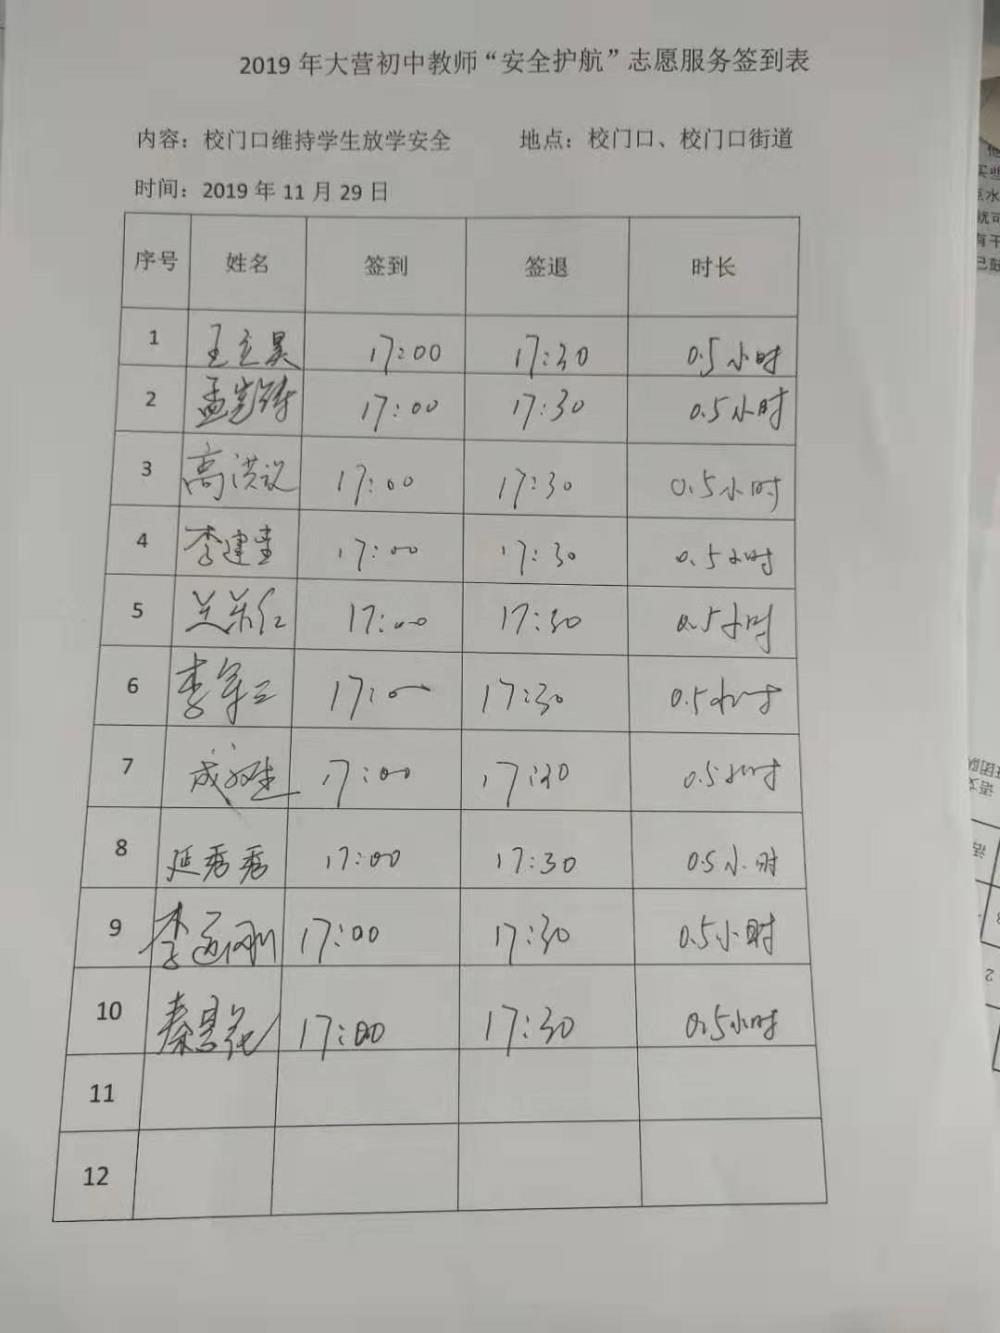 2019 年大营初中教师“安全护航”志愿服务签到表
内容：校门口维持学生放学安全 地点：校门口、校门口街道
时间：2019 年 11 月 29 日
序号 姓名 签到 签退 时长
1 王立昊 17:00 17:30 0.5小时
2 孟 17:00 17:30 0.5小时
3 高洪议 17:00 17:30 0.5小时
4 李建 17:00 17:30 0.5小时
5 兰 17:00 17:30 0.5小时
6 李军三 17:00 17:30 0.5小时
7 成 17:00 17:30 0.5小时
8 延秀秀 17:00 17:30 0.5小时
9 李 刚 17:00 17:30 0.5小时
10 秦 17:00 17:30 0.5小时
11
12